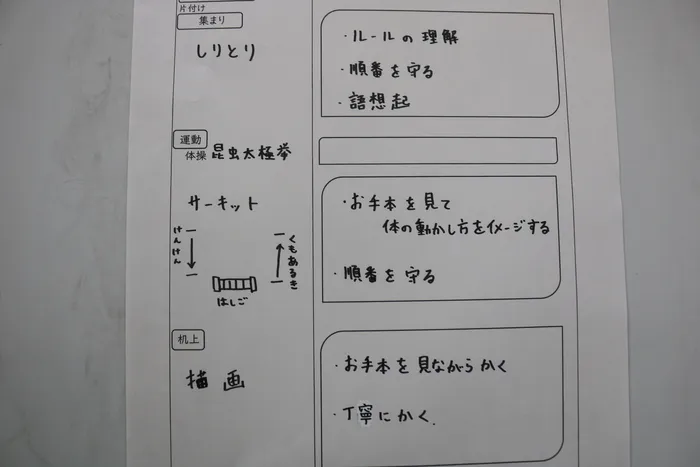 片付け
集まり
しりとり
・ルールの理解
・順番を守る
・語想起
運動
体操 昆虫太極拳
サーキット
けんけん
はしご
くもあるき
・お手本を見て
体の動かし方をイメージする
・順番を守る
机上
描画
・お手本を見ながらかく
・丁寧にかく.